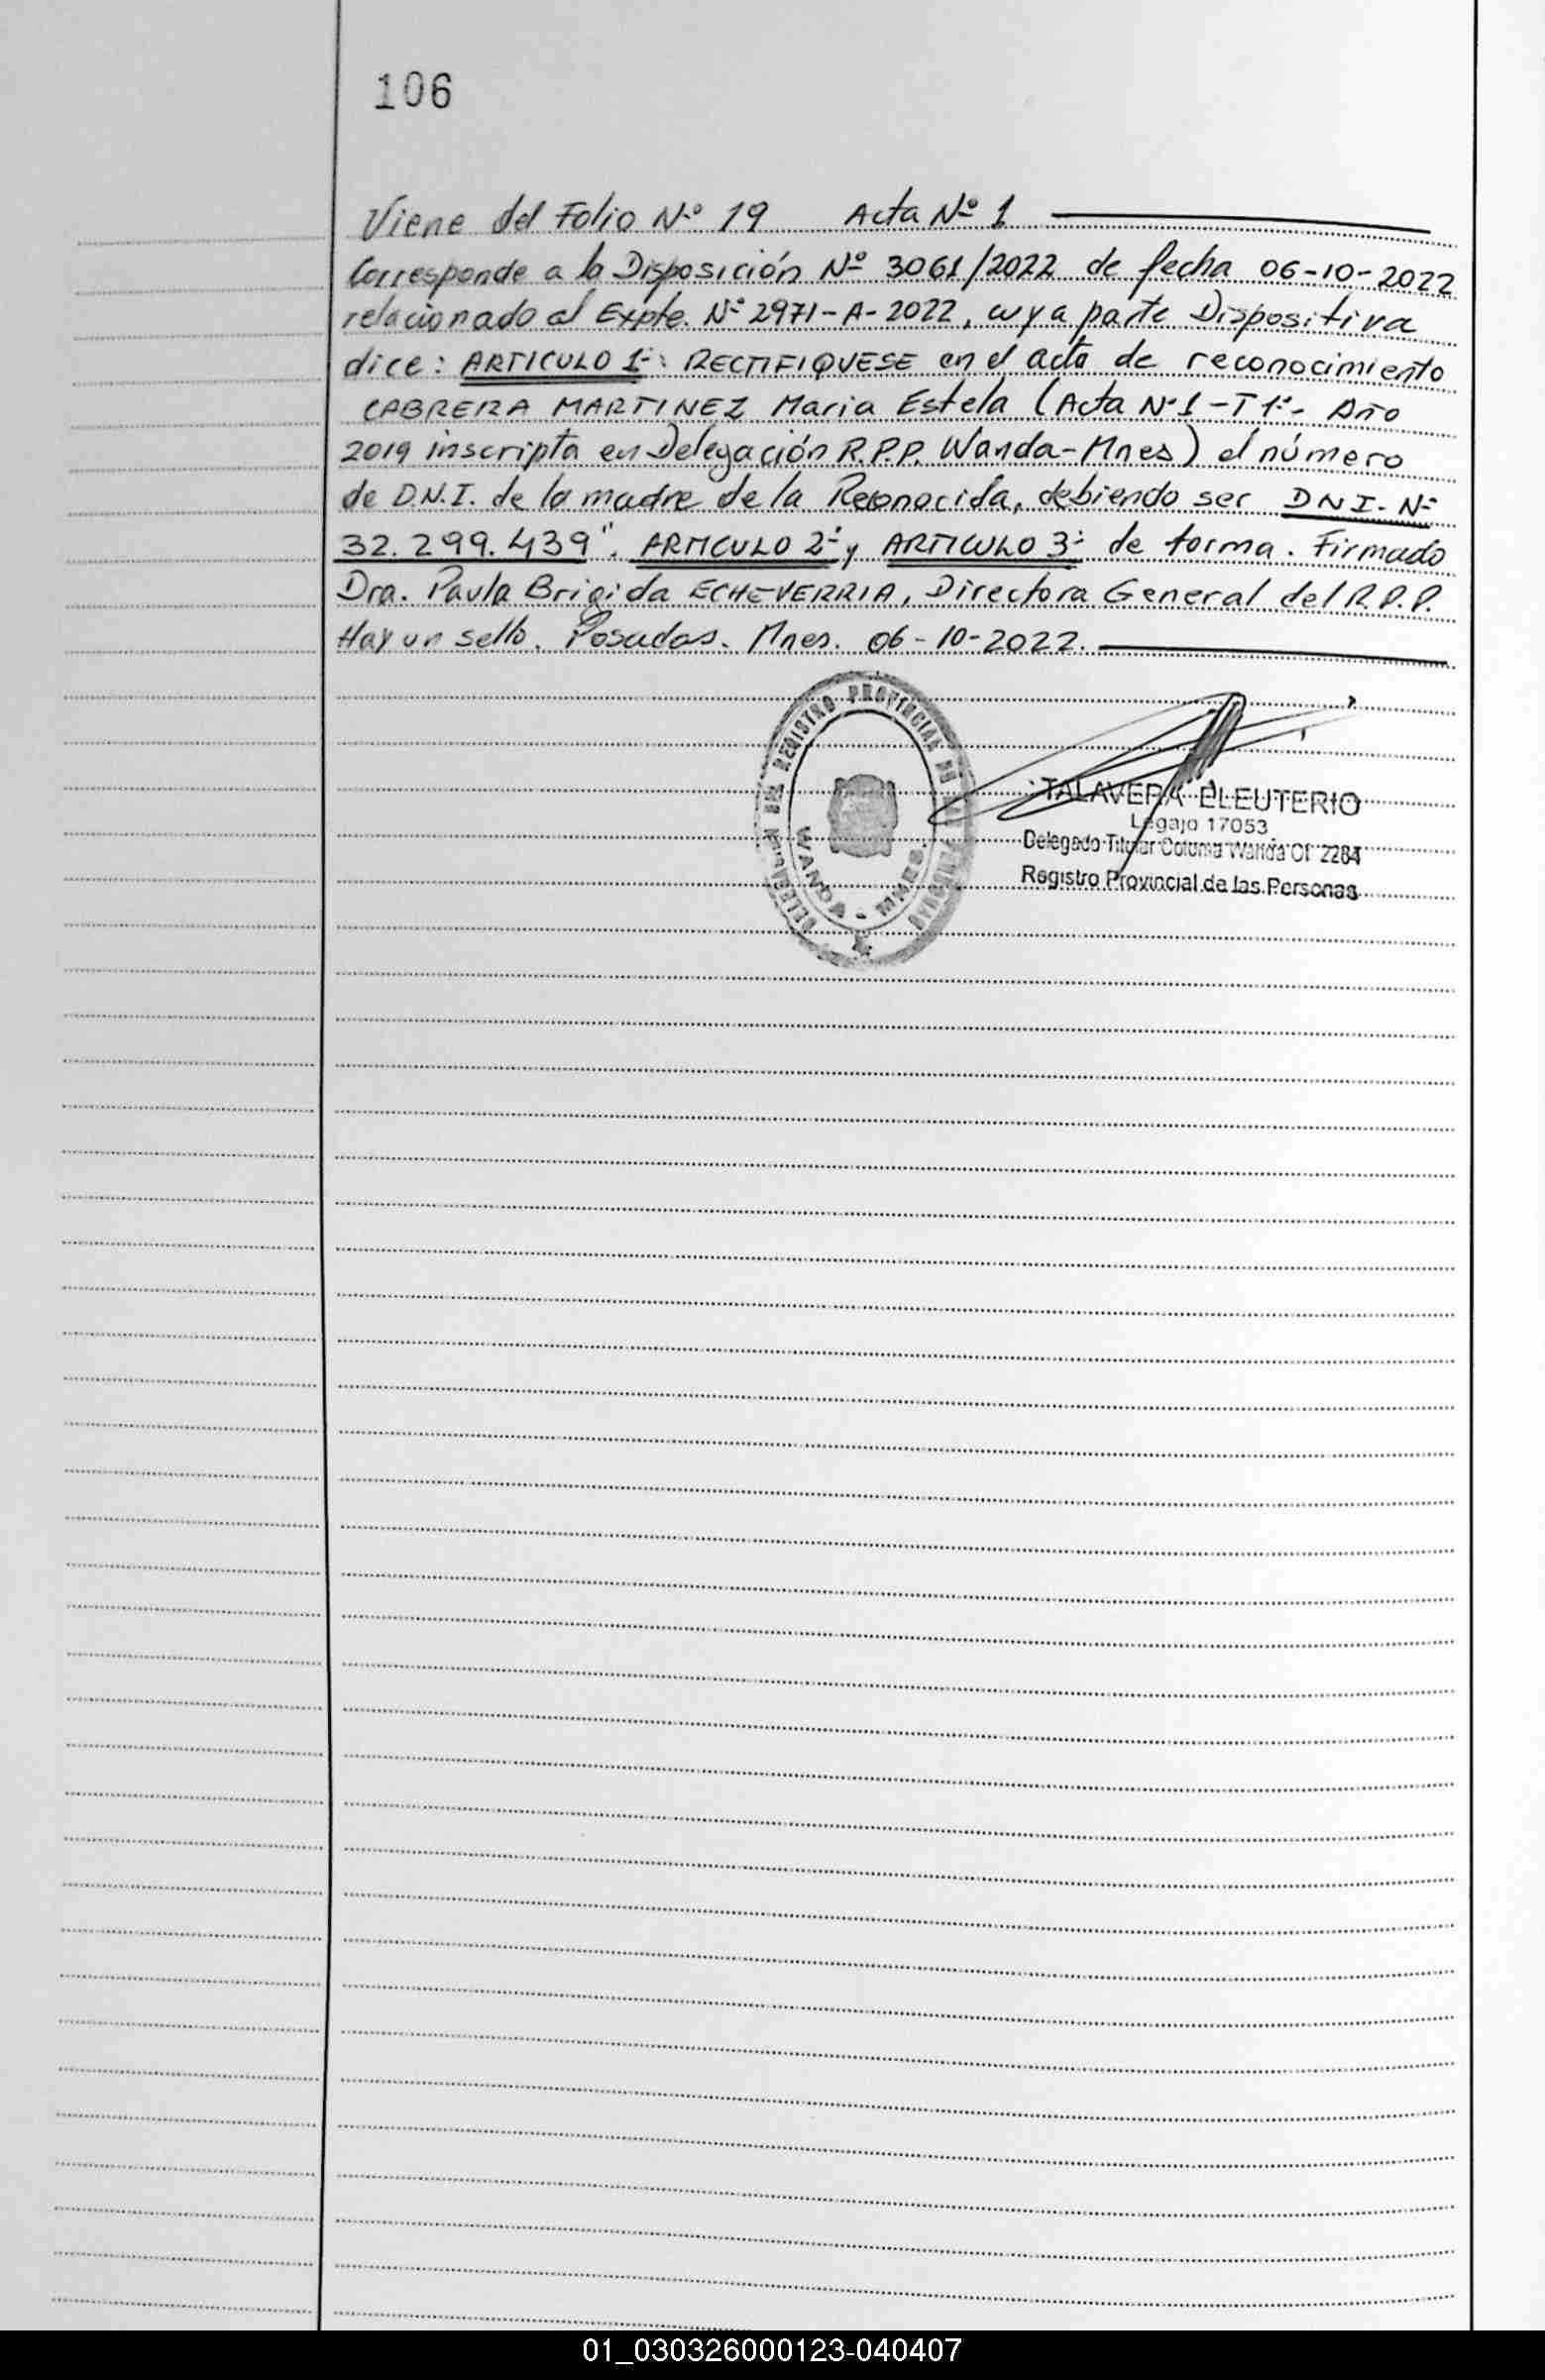 106
Viene del Folio Nº 19 Acta Nº 1
Corresponde a la Disposición Nº 3061/2022 de fecha 06-10-2022
relacionado al Expte. Nº 2971-A-2022, cuya parte Dispositiva
dice: ARTICULO 1º: RECTIFIQUESE en el acta de reconocimiento
CABRERA MARTINEZ Maria Estela (Acta Nº1-T1º- Año
2019 inscripta en Delegación R.P.P. Wanda-Mnes) el número
de D.N.I. de la madre de la Reconocida, debiendo ser DNI-Nº
32.299.439". ARTICULO 2º y ARTICULO 3º de forma. Firmado
Dra. Paula Brigida ECHEVERRIA, Directora General del R.P.P.
Hay un sello. Posadas. Mnes. 06-10-2022.
DELEGACION DEL REGISTRO PROVINCIAL DE LAS PERSONAS
WANDA - MNES.
TALAVERA ELEUTERIO
Legajo 17053
Delegado Titular Wanda Of 2284
Registro Provincial de las Personas
01_030326000123-040407